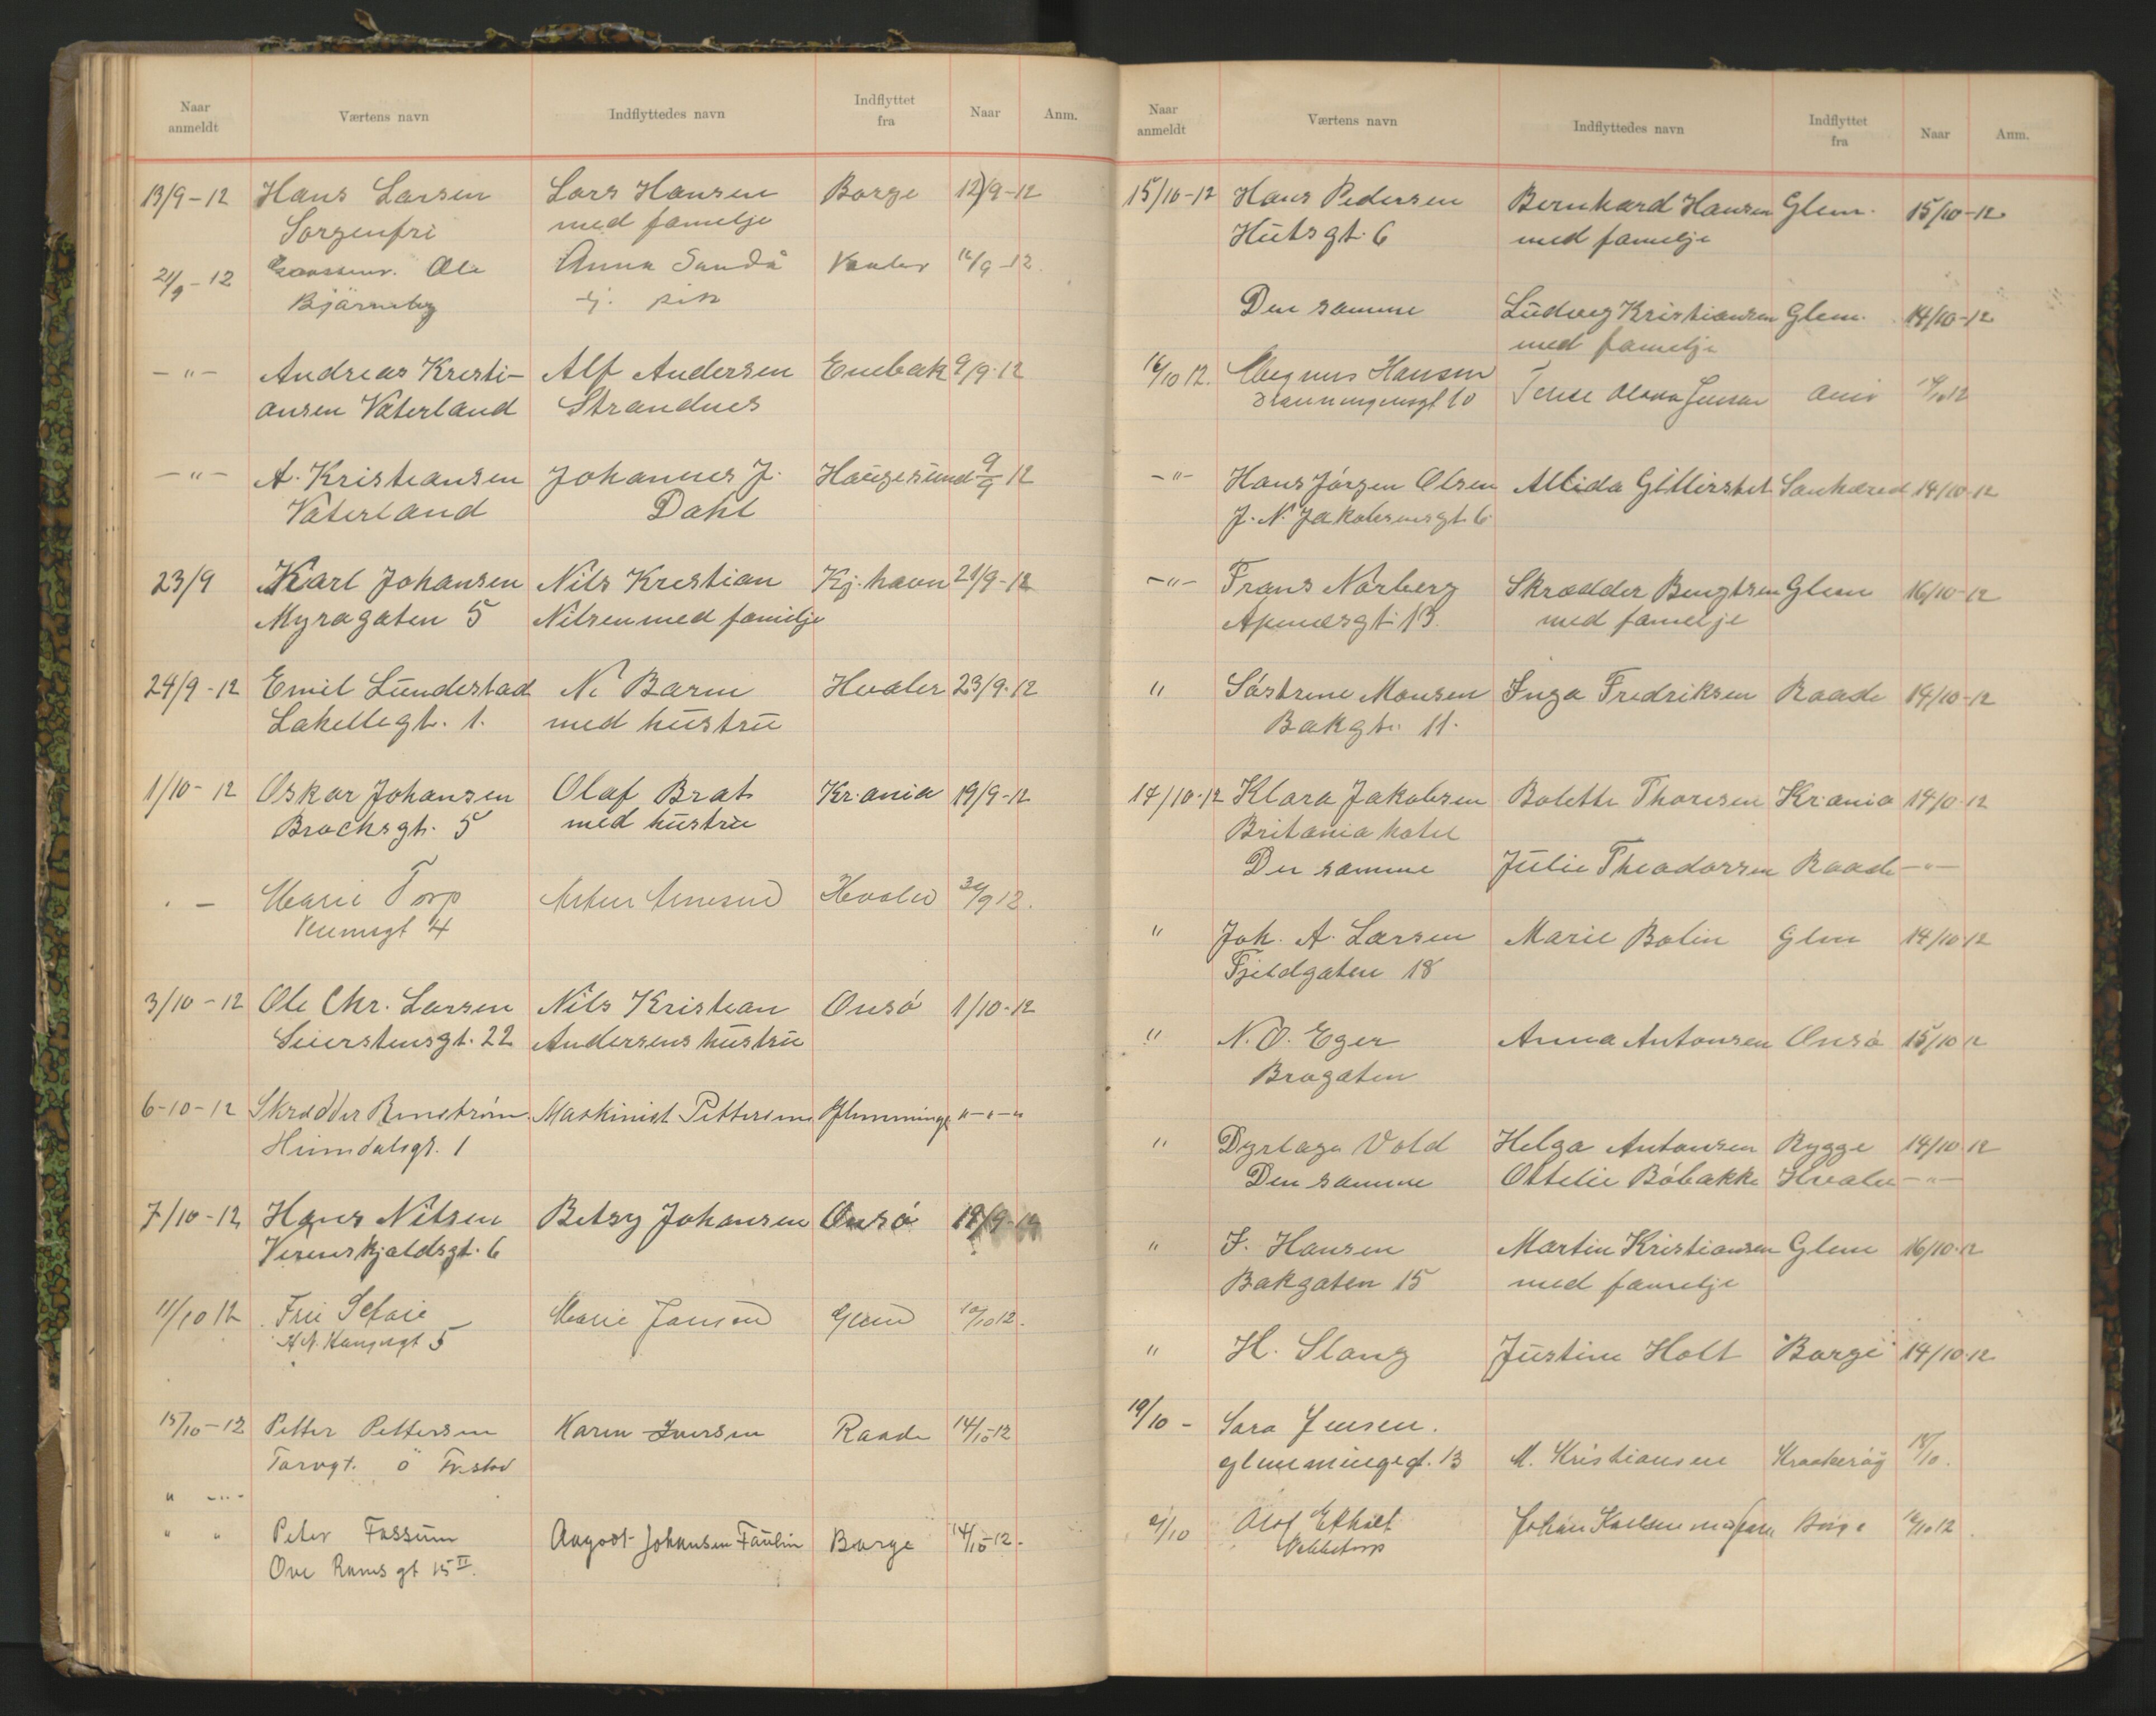 Naar anmeldt Værtens navn Indflyttedes navn Indflyttet fra Naar Anm.
13/9-12 Hans Larsen Lars Hansen Borge 12/9-12
Sorgenfri med familje
21/9-12 Ole Anna Sundå
Bjärneby
-"- Andreas Kristi- Alf Andersen Enebak 9/9-12
ansen Vaterland Strandnes
-"- A. Kristiansen Johannes J. Haugesund 9/9 12
Vaterland Dahl
23/9 Karl Johansen Nils Kristian Kj.havn 21/9-12
Myragaten 5 Nilsen med familje
24/9-12 Emil Lundestad N. Barm Hvaler 23/9-12
Lakellegt. 1. med hustru
1/10-12 Oskar Johansen Olaf Brat Kr.ania 19/9-12
Brochsgt. 5 med hustru
Marie Torp Hvaler 30/9 12.
4
3/10-12 Ole Chr. Larsen Nils Kristian Onsö 1/10-12
Seierstensgt. 22 Andersens hustru
6-10-12 Skrædder Maskinist Pettersen Glemminge "-"-"
Heimdalsgt. 1
7/10-12 Hans Nilsen Betsy Johansen Onsö 19/9-12
Verenskjoldsgt. 6
11/10 12 Marie Jansen Glem 10/10 12.
5
15/10-12 Petter Pettersen Karen Iversen Raade 14/10-12
Torvgt. ö Fr.stad
" -"-
" " Peter Fossum August Johansen Faulin Borge 14/10-12.
Ove Rams gt 15 II.
Naar anmeldt Værtens navn Indflyttedes navn Indflyttet fra Naar Anm.
15/10-12 Hans Pedersen Bernhard Hansen Glem. 15/10-12
Hutsgt. 6 med familje
Den samme Ludvig Kristiansen Glem. 14/10-12
med familje
16/10 12. Magnus Hansen Olava Jensen
Dronningensgt 10
-"- Hans Jörgen Olsen Alida 14/10-12
J. N. Jakobsensgt. 6.
-"- Frans Norberg Skrædder Bengtsen Glem 16/10-12
Apenæsgt. 13. med familje
" Söstrene Monsen Inga Fredriksen Raade 14/10-12
Bakgt. 11.
17/10-12 Klara Jakobsen Bolette Thoresen Kr.ania 14/10-12
Britania hotel
Den samme Julie Theodorsen Raade -"-
" Joh. A. Larsen Marie Bolin Glem 14/10 12
Fjeldgaten 18
" N. O. Eger Anna Antonsen Onsö 15/10 12
Brogaten
" Dyrlæge Vold Helga Antonsen Rygge 14/10 12
Den samme Ottelie Böbakke Hvaler -"-
" F. Hansen Martin Kristiansen Glem 16/10-12
Bakgaten 15 med familje
" H. Slang Justine Holt Borge 14/10-12
19/10 - Sara Jensen.
Glemmingegt. 13 M. Kristiansen Kraakeröy
Olaf Johan Karlsen Borge